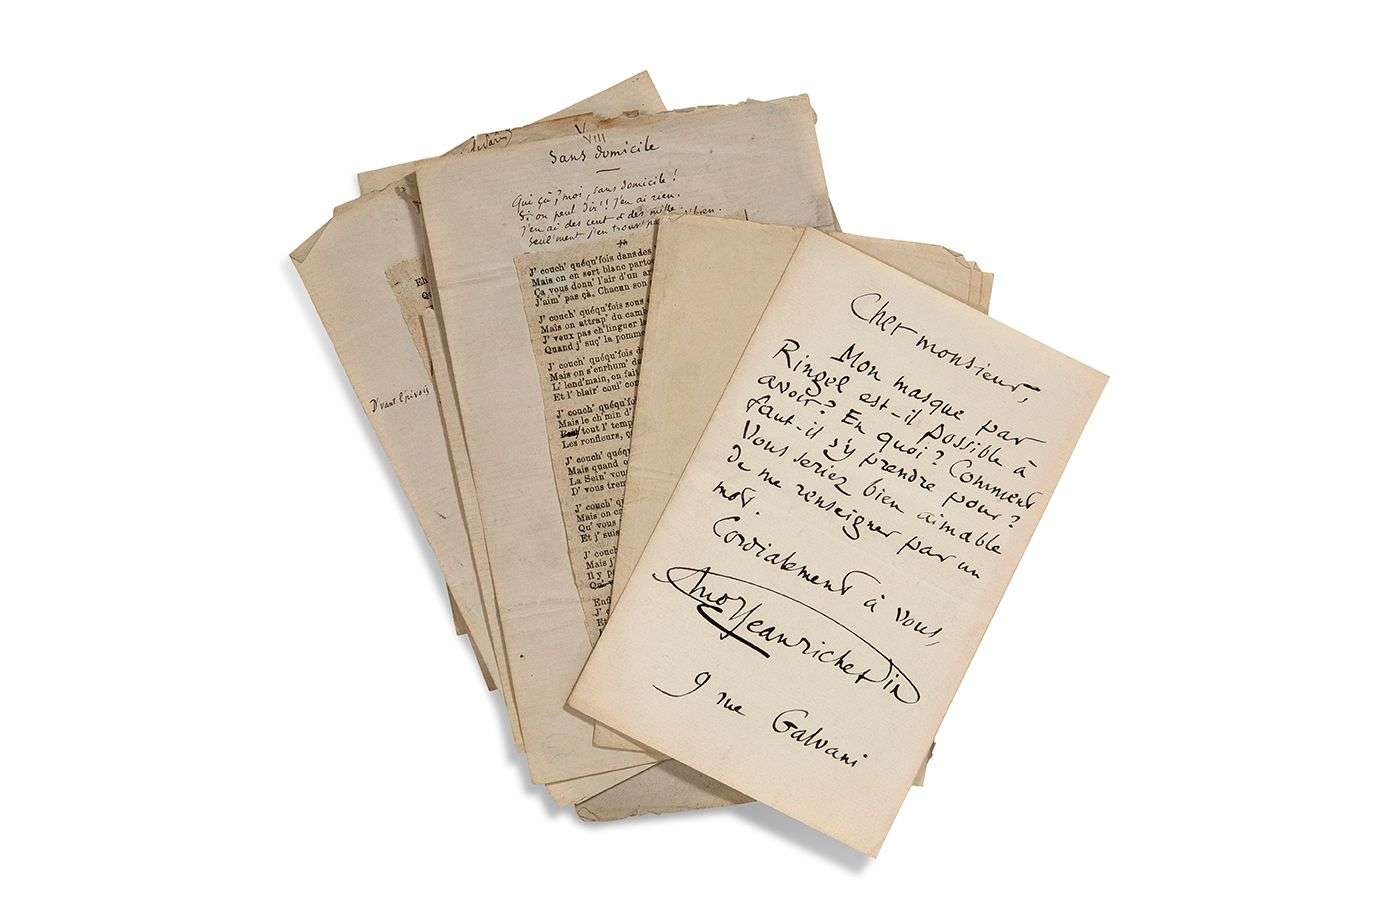 V
VIII
Sans domicile
Qui çà ? moi, sans domicile !
Si on peut dir' ! J'en ai rien.
J'en ai des cent et des mille
Seul'ment j'en trouv' bien.
J' couch' quéqu'fois dans des
Mais on en sort blanc partou
Ça vous donn' l'air d'un ar
J'aim' pas çà. Chacun son
J' couch' quéqu'fois sous
Mais on attrap' du cam
J' veux pas eh'linguer l
Quand j' suç' la pomme
J' couch' quéqu'fois d
Mais on s'enrhum' d
L' lend'main, on fai
Et l' blair coul' com
J' couch' quéqu'fo
Mais le ch'min d'
tout l' temp
Les ronfleurs, ç
J' couch' quéq
Mais quand o
La Sein' vou
D' vous trem
J' couch' q
Mais on cr
Qu' vous
Et j' suis
J' couch
Mais j'
Il y p
Qu'
Enfi
J' c
Et
D'vant l'pivois
Cher monsieur,
Mon masque par
Ringel est-il possible à
avoir ? En quoi ? Comment
faut-il s'y prendre pour ?
Vous seriez bien aimable
de me renseigner par un
mot.
Cordialement à vous,
Jean richepin
9 rue Galvani